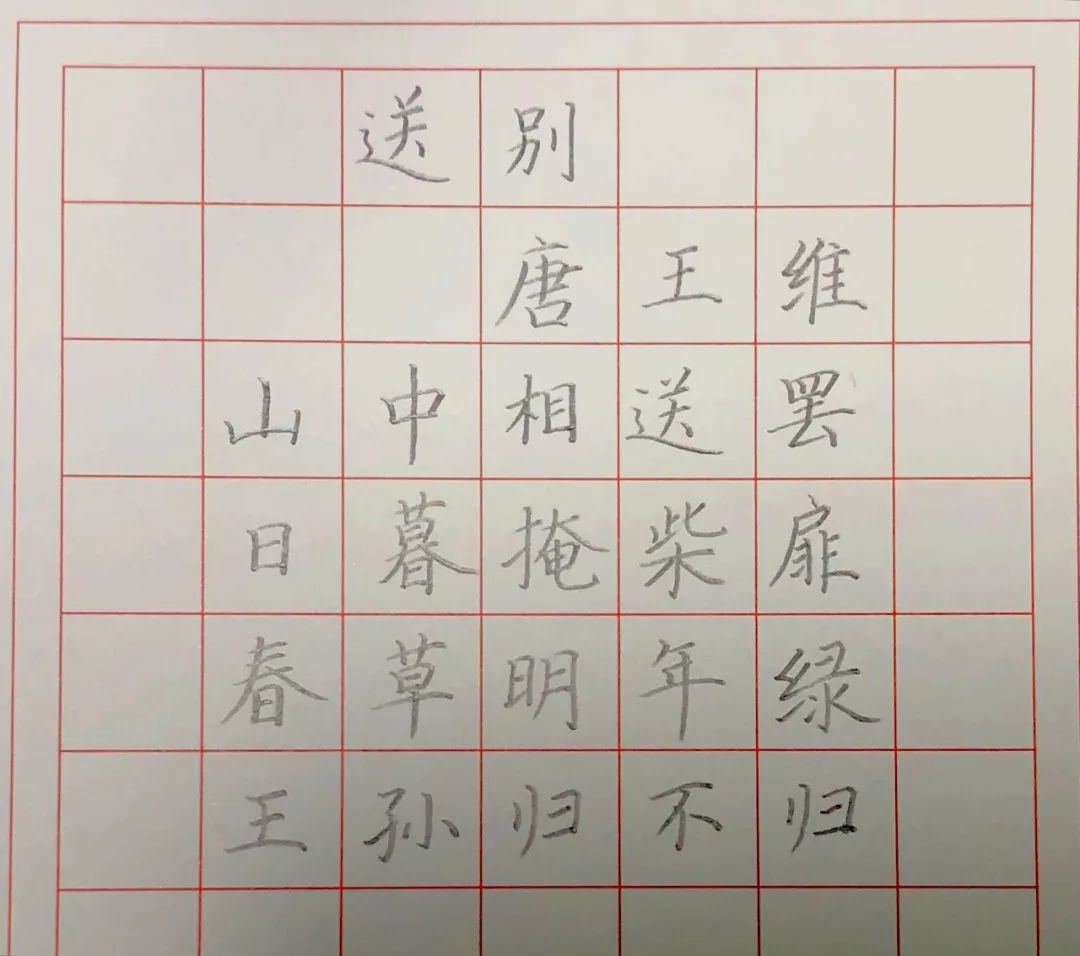 送别
唐王维
山中相送罢
日暮掩柴扉
春草明年绿
王孙归不归